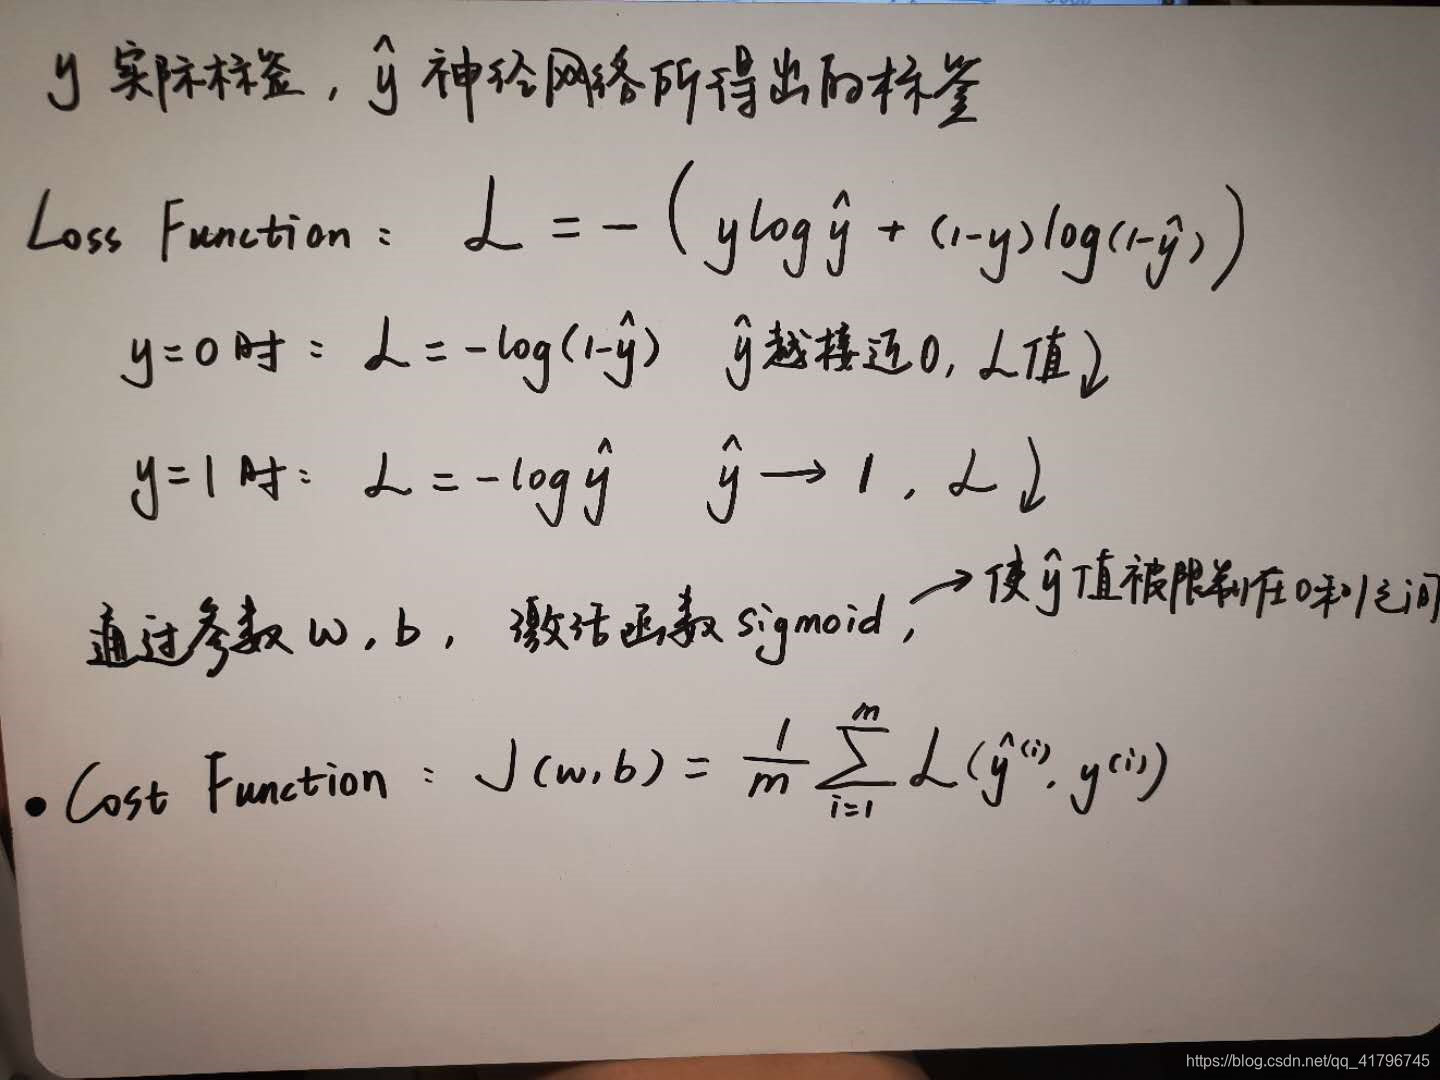 y 实际标签, ŷ 神经网络所得出的标签
Loss Function: L = -(y log ŷ + (1-y) log(1-ŷ))
y=0时: L = -log(1-ŷ) ŷ越接近0, L值↓
y=1时: L = -log ŷ ŷ → 1, L↓
通过参数 w, b, 激活函数 sigmoid, → 使ŷ值被限制在0和1之间
• Cost Function: J(w,b) = 1/m ∑_{i=1}^{m} L(ŷ^(i), y^(i))
https://blog.csdn.net/qq_41796745